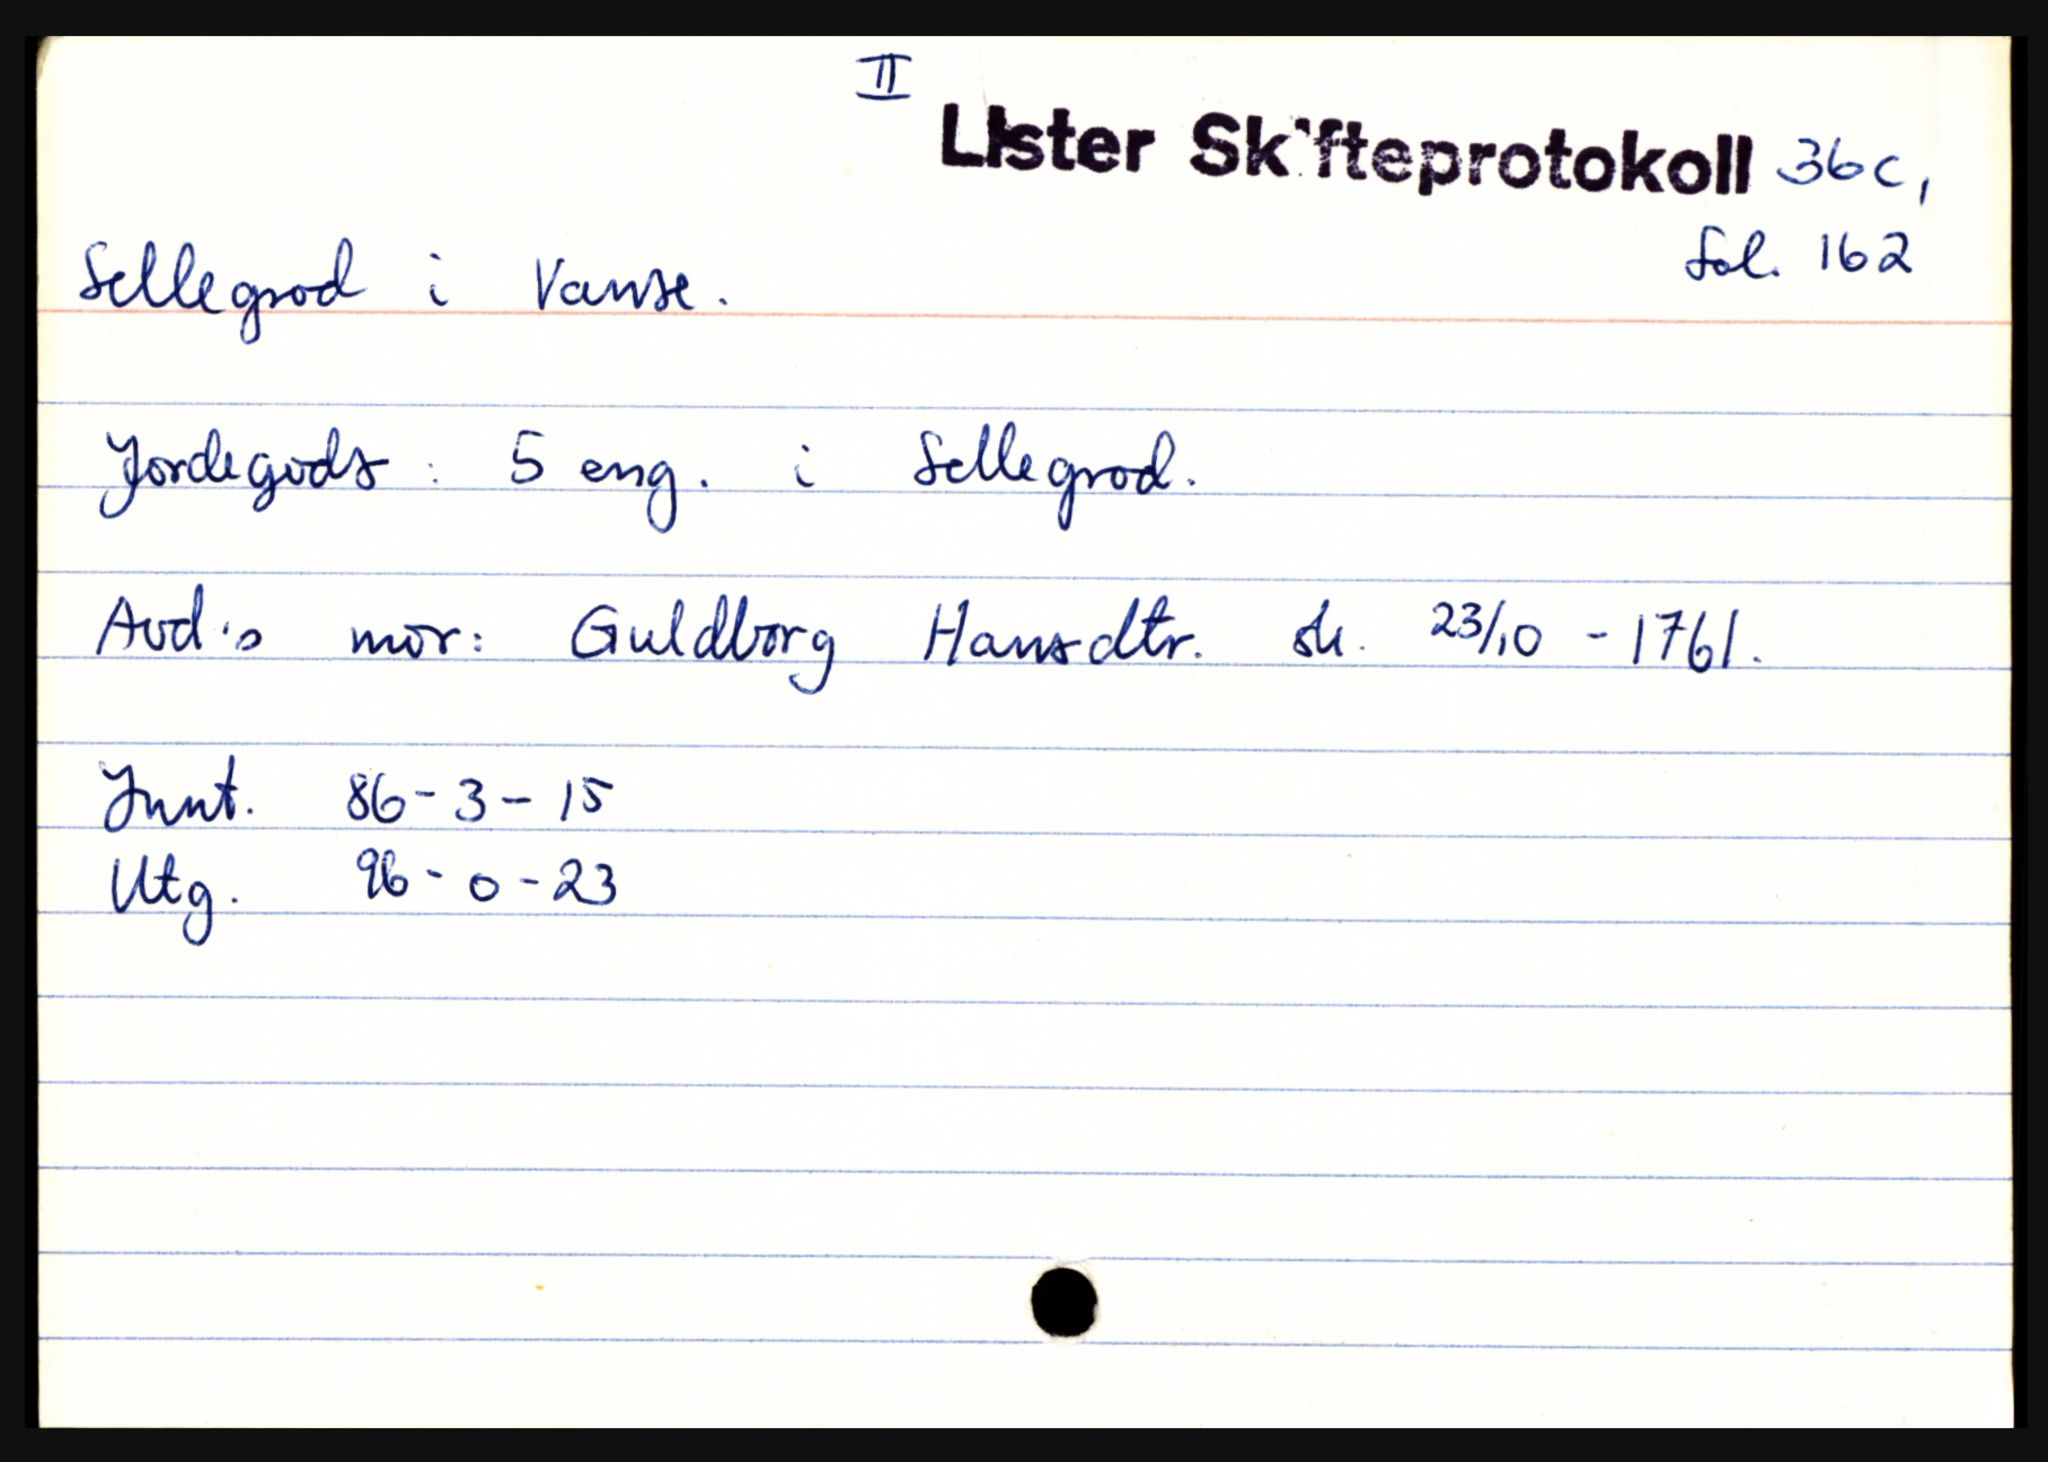 II
Lister Skifteprotokoll 36c,
fol. 162
Sellegrod i Vanse.
Jordegods: 5 eng. i Sellegrod.
Avd's mor: Guldborg Hansdtr. sk. 23/10 - 1761.
Innt. 86 - 3 - 15
Utg. 96 - 0 - 23